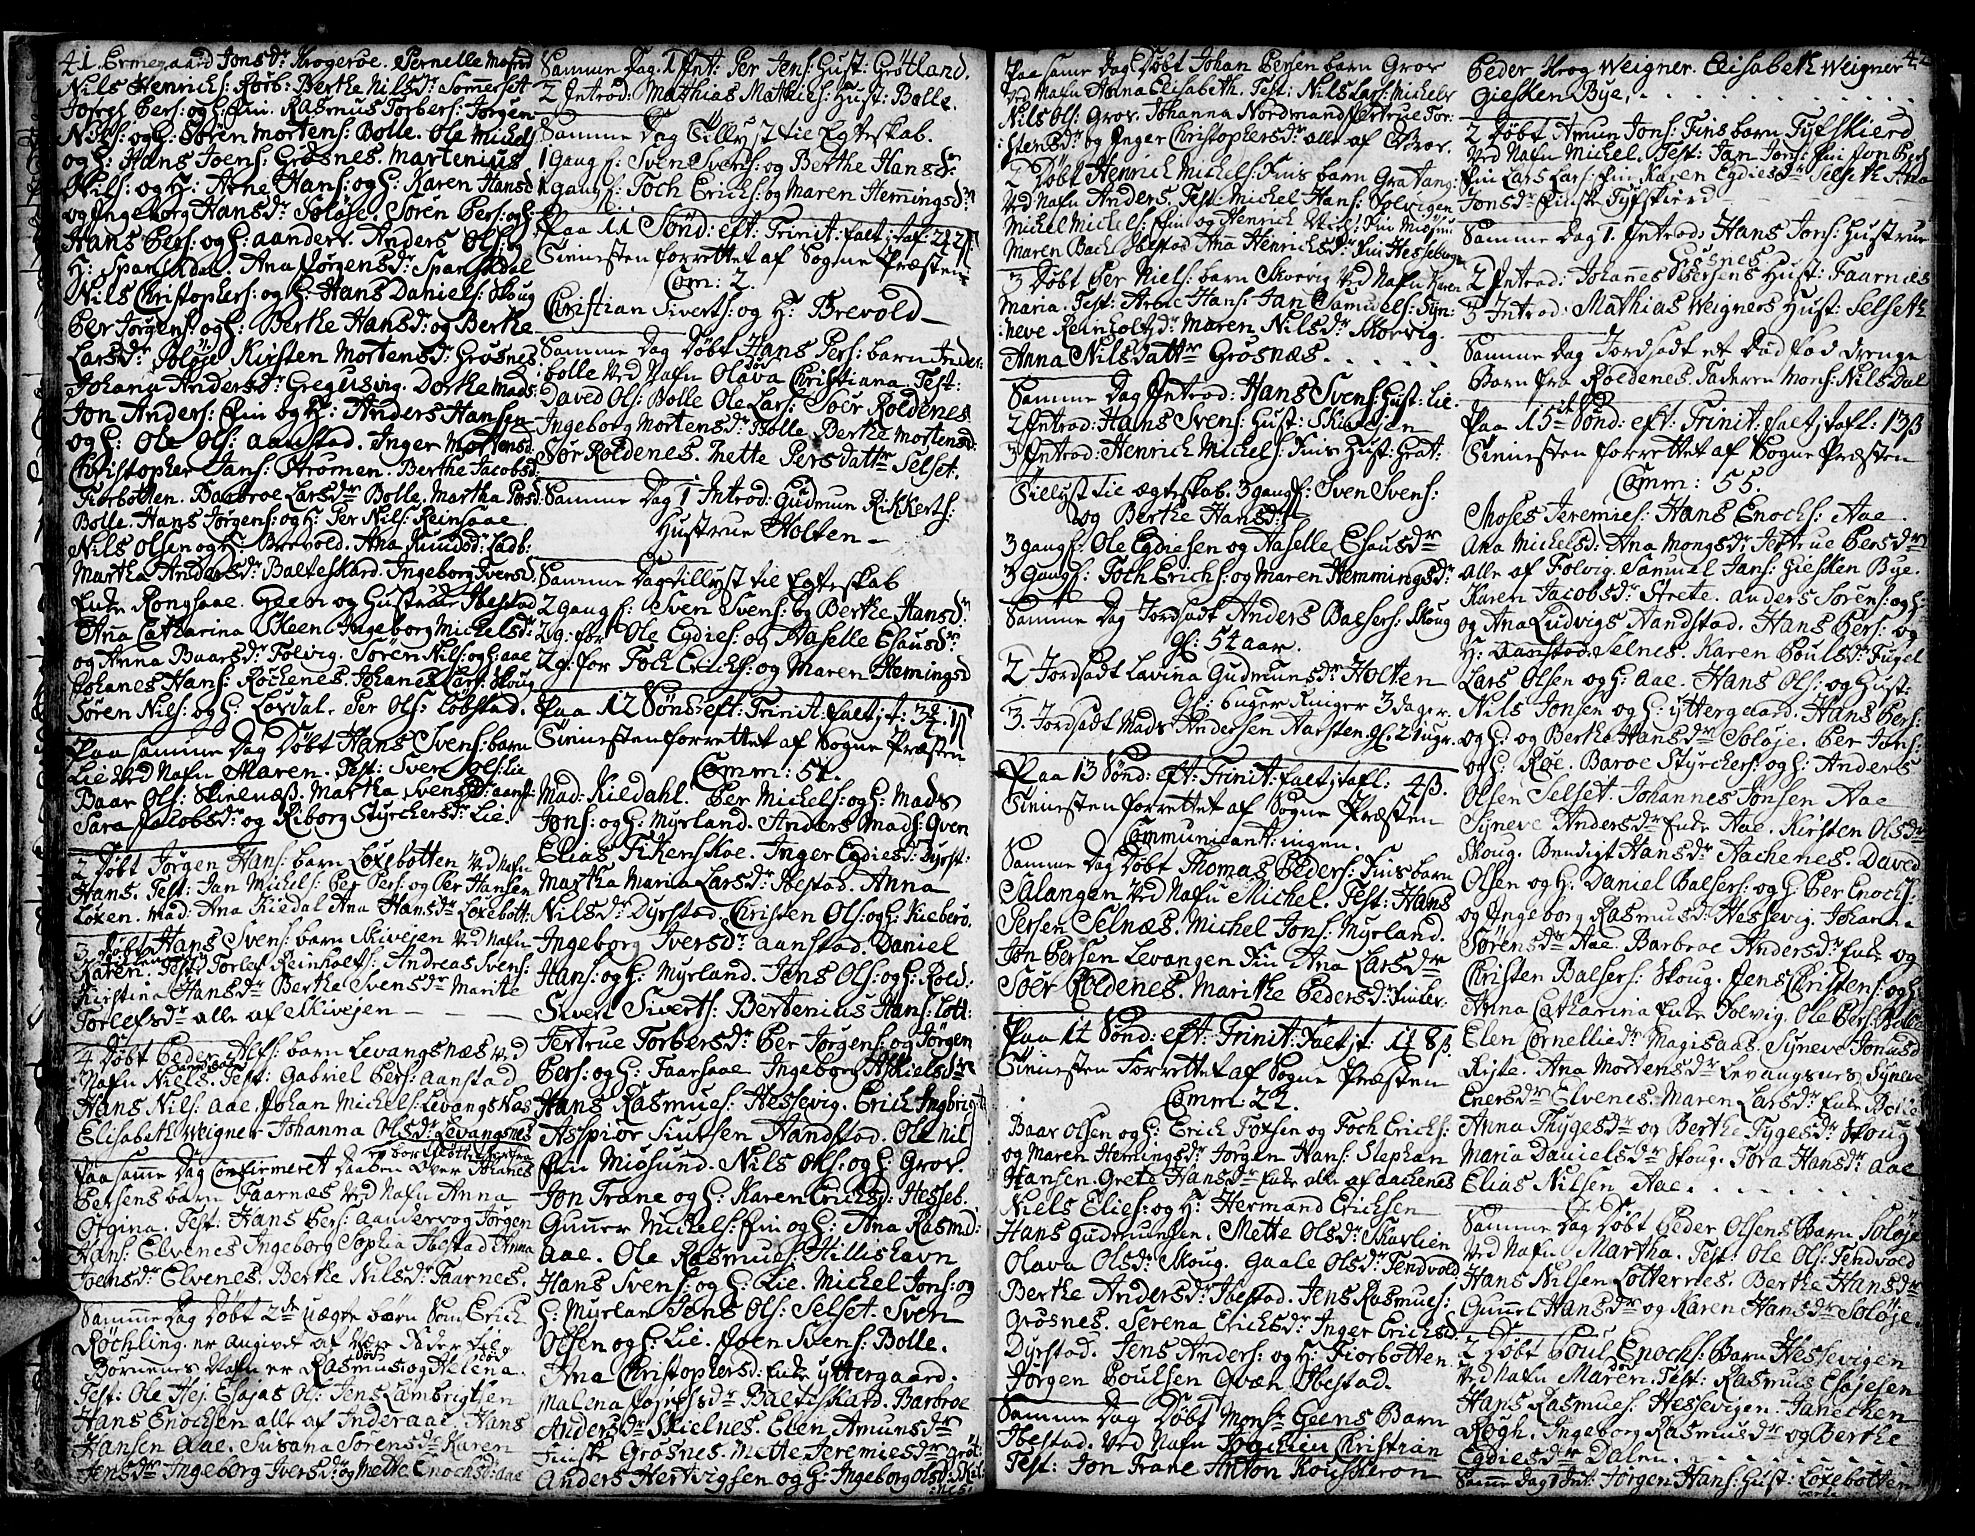 41. Ermegaard Jonsdr Krogerøe. Pernelle
Nils Henrichs: Rørb: Berthe Nilsdr Sommerset
Joseph Pers: og H: Fin. Rasmus Torbers: Jørgen
Nils: og H: Søren Mortens: Bolle. Ole Michels
og H: Hans Joens: Grøsnes. Martenius
Nils: og H: Arne Hans: og H: Karen Hansd
og Ingeborg Hansdr Soløje. Søren Pers: og H:
Hans Pers: og H: Aanderv. Anders Ols: og
H: Spansdal. Ana Jørgensdr Spansdal
Nils Christophers: og H: Hans Daniels: Skoug
Per Jørgens: og H: Berthe Hansd: og Berthe
Larsdr Soløje Kirsten Mortensdr Grøsnes
Johana Andersdr Gregusvig. Dorthe Mads:
Jon Anders: Fin og H: Anders Hansen
og H: Ole Ols: Aanstad. Inger Mortensd
Christopher Jans: Strømen. Berthe Jacobsd
Fiorbotten. Barbroe Larsdr Bolle. Martha Persd
Bolle. Hans Jørgens: og H: Per Nils: Reinsaae
Nils Olsen og H: Brevold. Ana Knudsd: Ladb:
Martha Andersdr Balteskard. Ingeborg Iversd
Enke Rongsaae. Geen og Hustrue Ibestad
Anna Catharina Skeen Ingeborg Michelsdr
og Anna Baarsdr Folvig. Søren Nils: og H: Aae
Johanes Hans: Rochenes. Johanes Lars: Skoug
Søren Nils: og H: Løvdal. Per Ols: Løbstad.
Paa samme Dag Døbt Hans Svens: barn
Lie Ved Nafn Maren. Test: Sven Ols: Lie
Baar Ols: Skielnæs. Martha Svensdr Aanst:
Sara Jacobsdr og Riborg Styrckersdr Lie.
2 Døbt Jørgen Hans: barn Loxebotten Ved Nafn
Hans. Test: Jan Michels: Per Pers: og Per Hansen
Loxen. Mad: Ana Kiedal Ana Hansdr Loxebott:
3 Døbt Hans Svens: barn Skivejen Ved Nafn
Karen. Test: Torlef Reinholt: Andreas Svens:
Kirstina Hansdr Berthe Svensdr Marite
Torlefsdr alle af Skivejen
4 Døbt Peder Alfs: barn Levangsnæs Ved
Nafn Niels. Test: Gabriel Pers: Aanstad
Hans Nils: Aae. Johan Michels: Levangsnæs
Elisabeth Weigner Johanna Olsdr Levangsnes
Paa same Dag Confirmeret Daaben over Johanes
Persens barn Faarnæs Ved Nafn Anna
Test: Hans Pers: Aanderv og Jørgen
Hans: Elvenes Ingeborg Sophia Ibestad Anna
Joensdr Elvenes. Berthe Nilsdr Faarnes.
Samme Dag Døbt 2de Uægte børn Som Erick
Røchling er angivet af Være Fader til
Børnenes Nafn er Rasmus og Helena.
Test: Ole Hej. Esajas Ols: Jens Lambrigtsen
Hans Enochsen alle af Inderaae. Hans
Hansen Aae. Susana Sørensdr Karen
Jensdr Ingeborg Iversdr og Mette Enochsdr Aae
Samme Dag. 1 Int: Per Jens: Hust: Grøtland.
2 Introd: Mathias Mathies: Hust: Bolle.
Samme Dag Tillyst til Egteskab.
1 Gang f: Sven Svens: og Berthe Hansdr
1 gang f: Foch Erichs: og Maren Hemmingsdr
Paa 11 Sønd: eft: Trinit: falt i taf:
Tienesten forrettet af Sogne Præsten
Com: 2.
Christian Siverts: og H: Brevold
Samme Dag Døbt Hans Pers: barn Inder:
bolle Ved Nafn Olava Christiana. Test:
Daved Ols: Bolle Ole Lars: Søer Roldenes
Ingeborg Mortensdr Bolle. Berthe Mortensd
Sør Roldenes. Mette Persdattr Selset.
Samme Dag 1 Introd: Gudmun Rikkerts:
Hustrue Holten
Samme Dag tillyst til Egteskab
2 gang f: Sven Svens: og Berthe Hansdr
2 g: for Ole Egdies: og Haselle Esausdr
2 g: for Foch Erichs: og Maren Hemingsd
Paa 12 Sønd: eft: Trinit: falt i t:
Tienesten forrettet af Sogne Præsten
Comm: 51.
Mad: Kiedahl. Per Michels: og H: Mads
Jons: og H: Myrland. Anders Mads: Qven
Elias Fikenskoe. Inger Egdiesd: Dyrst:
Martha Maria Larsdr Ibestad. Anna
Nilsdr Dyrstad. Christen Ols: og H: Kieberø.
Ingeborg Iversdr Aanstad. Daniel
Hans: og H: Myrland. Jens Ols: og H: Rold:
Siverts: Bertenius Hans: Løtt:
Jertrue Torbersdr Per Jørgens: og Jørgen
Pers: og H: Faarsaae Ingeborg
Hans Rasmues: Hessevig. Erich Ingbrigt:
Aspiør Knutsen Aandstad. Ole Nils
Fin Miøsund. Nils Ols: og H: Grov.
Jon Trane og H: Karen Ericksd: Hesseb.
Gunner Michels: Fin og H: Ana Rasmd:
Aae. Ole Rasmues: Hillishavn
Hans Svens: og H: Lie. Michel Jons: og
H: Myrlan Jens Ols: Selset. Sven
Olsen og H: Lie. Joen Svens: Bolle.
Ana Christophersd: Enke Yttergaard.
Malena Josefsdr Balteskard. Barbroe
Andersdr Skielnes. Elen Amunsdr
Finsk Grøsnes. Mette Jeremiesdr Grøt:
Anders Hertvigsen og H: Ingeborg Olsdr
Paa same Dag Døbt Johan Persen barn Grov
Ved Nafn Anna Elisabeth. Test: Nils Lars: Michels
Nils Ols: Grov. Johanna Nordmand Jertrue Tor:
:stensdr og Inger Christophersdr alle af Grov.
2 Døbt Henrich Michels: Fins barn Gratang:
Ved Nafn Anders. Test Michel Hans: Folvigen
Michel Michels: Fin og Henrich Fin Miøsun
Maren Bach Ibestad Ana Henrichsdr Fin Hesseboge
3 Døbt Per Niels: barn Skovvig Ved Nafn Karen
Maria. Test: Hans: Jan Samuels: Syn:
:neve Reinholtdr Maren Nilsdr Skovvig.
Anna Nilsdattr Grøsnæs. . . . .
Samme Dag Introd: Hans Svens: Hust: Lie.
2 Introd: Hans Svens: Hust: Skivejen
3 Introd: Henrich Michels: Fins Hust: Grat:
Tillyst til ægteskab. 3 gang f: Sven Svens:
og Berthe Hansdr
3 gang f: Ole Egdiesen og Haselle Esausdr
3 Gang f: Foch Erichs: og Maren Hemmingsdr
Samme Dag Jordsadt Anders Balsers: Skoug
gl: 54 aar.
2 Jordsadt Lavina Gudmunsdr Holten
gl: 6 uger Ringer 3 dager.
3. Jordsadt Mads Andersen Aarsten gl: 21 ugr.
Paa 13 Sønd: eft: Trinit: falt i tafl: 4ß.
Tienesten forrettet af Sogne Præsten
Communicant: ingen.
Samme Dag Døbt Thomas Peders: Fins barn
Salangen Ved Nafn Michel. Test: Hans
Persen Selnæs. Michel Jons: Myrland.
Jon Persen Levangen Fin Ana Larsdr
Søer Roldenes. Marithe Pedersdr
Paa 14 Sønd: eft: Trinit: falt i t: 1 8ß.
Tienesten Forrettet af Sogne Præsten
Comm: 22.
Baar Olsen og H: Erich Foxsen og Foch Erichs:
og Maren Hemingsdr Jørgen Hans: Stephan
Hansen. Grete Hansdr Enke alle af Aachenes
Niels Elies: og H: Hermand Ericksen
Hans Gudmunsen. Mette Olsdr Skavlien
Olava Olsdr Skoug. Gaale Olsdr Tendvold
Berthe Andersdr Ibestad. Jens Rasmues:
Grøsnes. Serena Ericksdr Inger Ericksd
Dyrstad. Jens Anders: og H: Fiorbotten
Jørgen Poulsen Qvæn Ibestad.
Samme Dag Døbt Monsr Geens Barn
Ibestad. Ved Nafn Jochien Christian
Test: Jon Trane Anton Kouskeron
Peder Krog Weigner. Elisabeth Weigner 42
Giesken Bye. . . . . . . .
2 Døbt Amun Jons: Fins barn Tyfskierd
Ved Nafn Michel. Test: Jan Jons: Fin Jon Pers:
Fin Lars Lars: Fin Karen Egdiesdr Selseth Ana
Jonsdr Finsk Tyfskierd
Samme Dag 1. Introd: Hans Jons: Hustrue
Grøsnes
2 Introd: Johannes Persens Hust: Faarnæs
3 Introd: Mathias Weigners Hust: Selseth
Samme Dag Jordsadt et Død fød drenge
Barn fra Roldenes. Faderen Mons: Nilsdal
Paa 15de Sønd: eft: Trinit: falt i tafl: 13ß
Tienesten forrettet af Sogne Præsten
Comm: 55.
Moses Jeremies: Hans Enochs: Aae.
Ana Michelsd: Ana Mongsdr Jertrue Persdr
alle af Folvig. Samuel Jans: Giesken Bye.
Karen Jacobsdr Strete. Anders Sørens: og H:
og Ana Ludvigs Aandstad. Hans Pers: og
H: Selnes. Karen Poulsdr Fugel
Lars Olsen og H: Aae. Hans Ols: og Hust:
Nils Jonsen og H: Yttergaard. Hans Pers:
og H: og Berthe Hansdr Soløje. Per Jons:
og H: Røe. Baroe Styrckers: og H: Anders
Olsen Selset. Johannes Jonsen Aae
Syneve Andersdr Enke Aae. Kirsten Olsdr
Skoug. Bendigt Hansdr Aachenes. Daved
Olsen og H: Daniel Balsers: og H: Per Enochs:
og Ingeborg Rasmusdr Hessevig. Johana
Sørensdr Aae. Barbroe Andersdr Enke og
Christen Balsers: Skoug. Jens Christens: og H:
Anna Catharina Enke Folvig. Ole Pers: Bolle
Elen Cornelliedr Magisaas. Syneve Jonasd
Rijte. Ana Mortensdr Levangsnes. Syneve
Enersdr Elvenes. Maren Larsdr Enke
Anna Thygesdr og Berthe Tygesdr Skoug
Maria Danielsdr Skoug. Tora Hansdr Aae
Elias Nilsen Aae. . . . . .
Samme Dag Døbt Peder Olsens Barn Soløje
Ved Nafn Martha. Test: Ole Ols: Tendvold
Hans Nilsen Lotternes. Berthe Hansdr
Gunnel Hansdr og Karen Hansdr Soløje.
2 Døbt Poul Enochs: Barn Hessevigen
Ved Nafn Maren. Test: Rasmus Esajesen
Hans Rasmues: Hessevigen. Janecken
Rogh. Ingeborg Rasmusdr og Berthe
Egdiesdr Dalen. . . . . .
Same Dag 1 Int: Jørgen Hans: Hust: Loxebotten